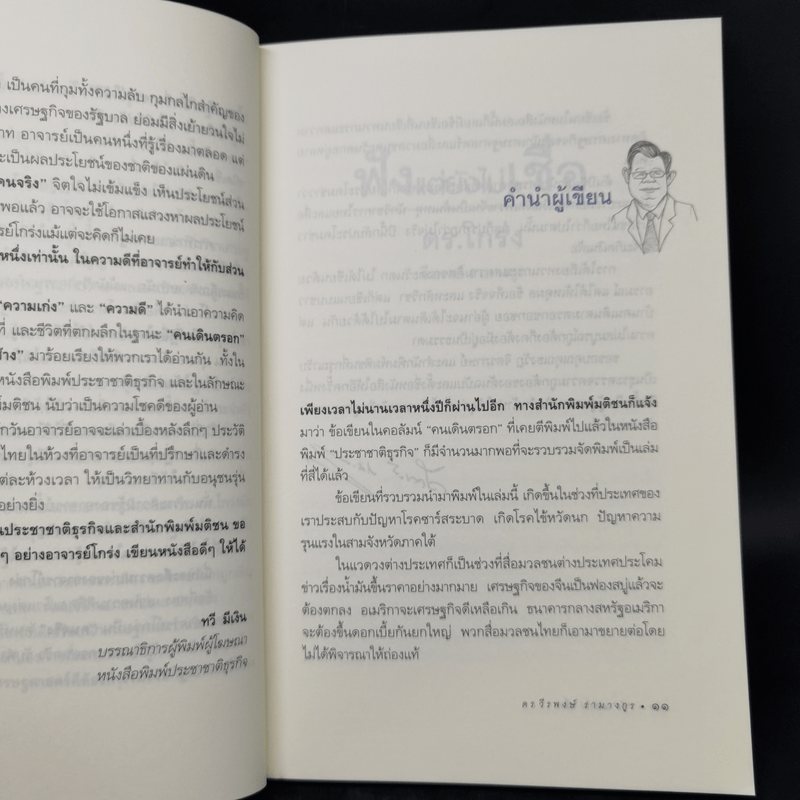 เป็นคนที่กุมทั้งความลับ กุมกลไกสำคัญของ
เศรษฐกิจของรัฐบาล ย่อมมีสิ่งเย้ายวนใจไม่
อาจารย์เป็นคนหนึ่งที่รู้เรื่องมาตลอด แต่
ะเป็นผลประโยชน์ของชาติของแผ่นดิน
คนจริง” จิตใจไม่เข้มแข็ง เห็นประโยชน์ส่วน
พอแล้ว อาจจะใช้โอกาสแสวงหาผลประโยชน์
ย์โกร่งแม้แต่จะคิดก็ไม่เคย
หนึ่งเท่านั้น ในความดีที่อาจารย์ทำให้กับส่วน
“ความเก่ง” และ “ความดี” ได้นำเอาความคิด
ที่ และชีวิตที่ตกผลึกในฐานะ “คนเดินตรอก”
มาร้อยเรียงให้พวกเราได้อ่านกัน ทั้งใน
หนังสือพิมพ์ประชาชาติธุรกิจ และในลักษณะ
มติชน นับว่าเป็นความโชคดีของผู้อ่าน
วันอาจารย์อาจจะเล่าเบื้องหลังลึกๆ ประวัติ
ไทยในห้วงที่อาจารย์เป็นที่ปรึกษาและดำรง
ต่ละห้วงเวลา ให้เป็นวิทยาทานกับอนุชนรุ่น
อย่างยิ่ง
ประชาชาติธุรกิจและสำนักพิมพ์มติชน ขอ
ๆ อย่างอาจารย์โกร่ง เขียนหนังสือดีๆ ให้ได้
ทวี มีเงิน
บรรณาธิการผู้พิมพ์ผู้โฆษณา
หนังสือพิมพ์ประชาชาติธุรกิจ
คำนำผู้เขียน
เพียงเวลาไม่นานเวลาหนึ่งปีก็ผ่านไปอีก ทางสำนักพิมพ์มติชนก็แจ้ง
มาว่า ข้อเขียนในคอลัมน์ “คนเดินตรอก” ที่เคยตีพิมพ์ไปแล้วในหนังสือ
พิมพ์ “ประชาชาติธุรกิจ” ก็มีจำนวนมากพอที่จะรวบรวมจัดพิมพ์เป็นเล่ม
ที่สี่ได้แล้ว
ข้อเขียนที่รวบรวมนำมาพิมพ์ในเล่มนี้ เกิดขึ้นในช่วงที่ประเทศของ
เราประสบกับปัญหาโรคซาร์สระบาด เกิดโรคไข้หวัดนก ปัญหาความ
รุนแรงในสามจังหวัดภาคใต้
ในแวดวงต่างประเทศก็เป็นช่วงที่สื่อมวลชนต่างประเทศประโคม
ข่าวเรื่องน้ำมันขึ้นราคาอย่างมากมาย เศรษฐกิจของจีนเป็นฟองสบู่แล้วจะ
ต้องตกลง อเมริกาจะเศรษฐกิจดีเหลือเกิน ธนาคารกลางสหรัฐอเมริกา
จะต้องขึ้นดอกเบี้ยกันยกใหญ่ พวกสื่อมวลชนไทยก็เอามาขยายต่อโดย
ไม่ได้พิจารณาให้ถ่องแท้
ดร.วีรพงษ์ รามางกูร • ๑๑